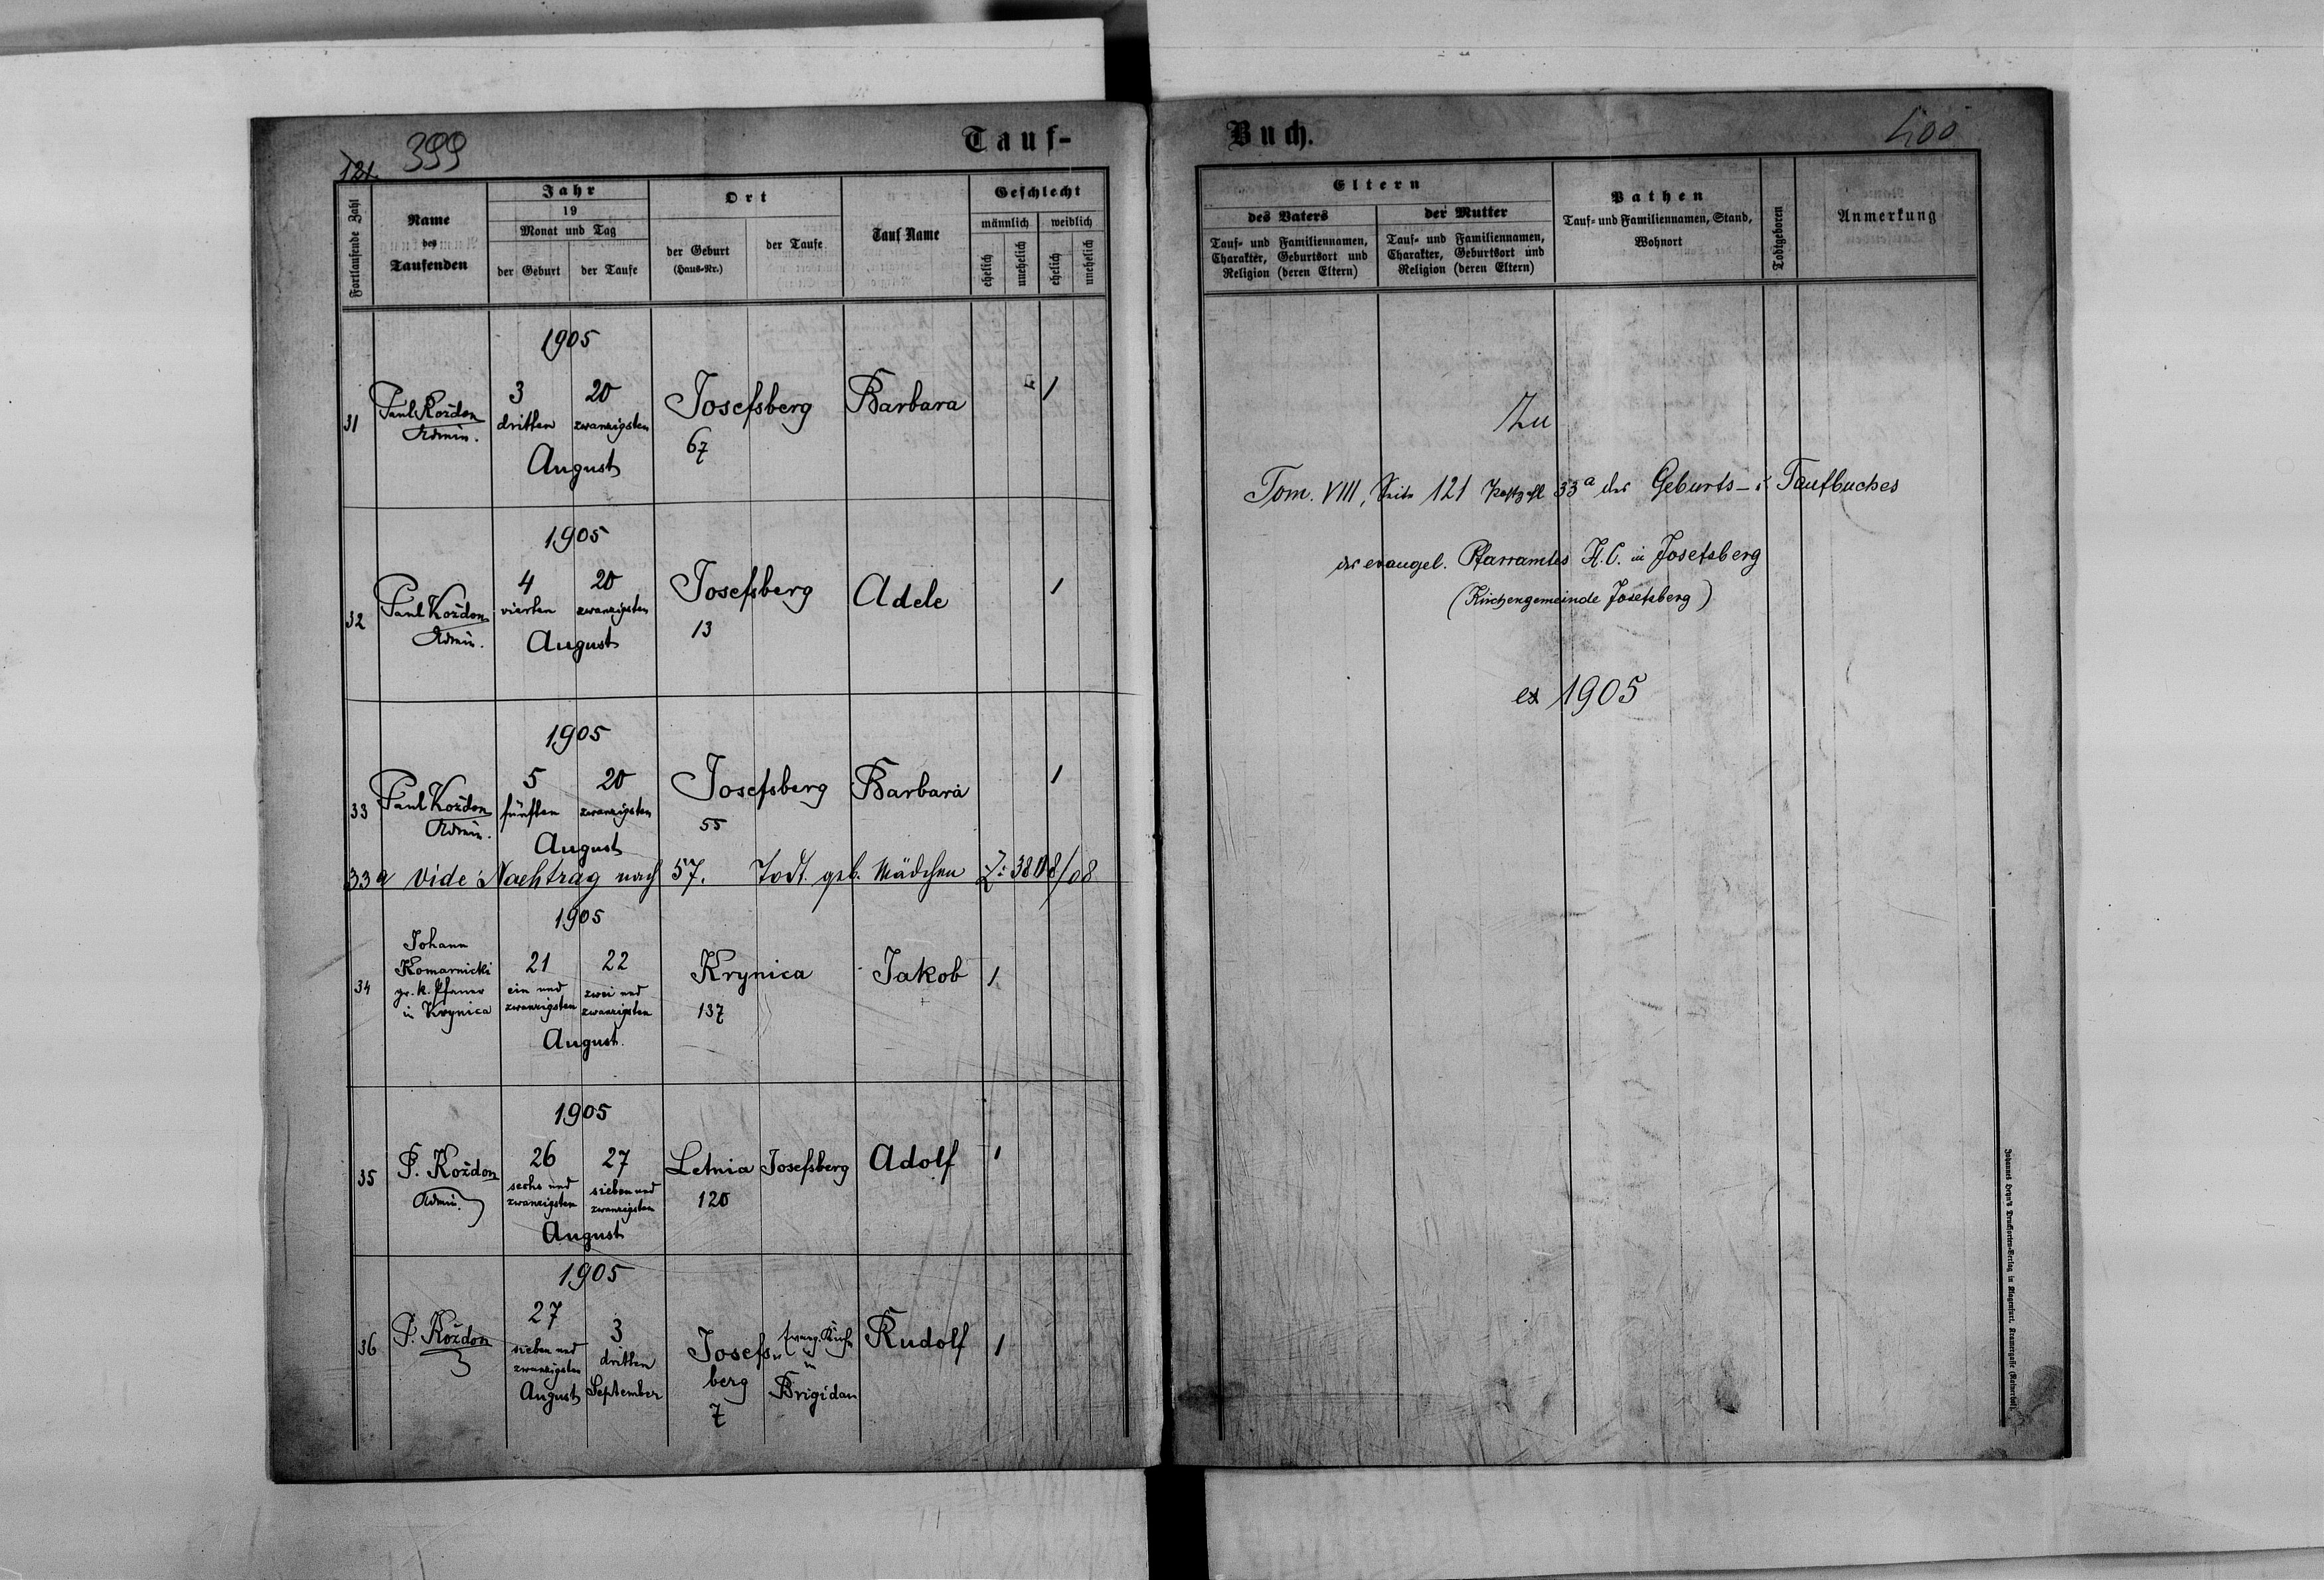 121. 399
Tauf-
Fortlaufende Zahl
Name
des
Taufenden
Jahr
19
Monat und Tag
der Geburt
der Taufe
Ort
der Geburt
(Haus-Nr.)
der Taufe
Tauf Name
Geschlecht
männlich
weiblich
ehelich
unehelich
ehelich
unehelich
1905
31 Paul Kożdon 3 20 Josefsberg Barbara 1
Admin. dritten zwanzigsten 67
August
1905
32 Paul Kożdon 4 20 Josefsberg Adele 1
Admin. vierten zwanzigsten 13
August
1905
33 Paul Kożdon 5 20 Josefsberg Barbara 1
Admin. fünften zwanzigsten 55
August
33a vide Nachtrag nach 57. Todt. geb. Mädchen
1905
34 Johann
Komarnicki
gr. k. Pfarrer
in Krynica
21 22 Krynica Jakob 1
ein und zwei und 137
zwanzigsten zwanzigsten
August
1905
35 P. Kożdon 26 27 Letnia Josefsberg Adolf 1
Admin. sechs und sieben und 120
zwanzigsten zwanzigsten
August
1905
36 P. Kożdon 27 3 Josefs- Evang. Kirche Rudolf 1
sieben und dritten berg in
zwanzigsten September 7 Brigidau
August
Buch.
400
Eltern
des Vaters
Tauf- und Familiennamen,
Charakter, Geburtsort und
Religion (deren Eltern)
der Mutter
Tauf- und Familiennamen,
Charakter, Geburtsort und
Religion (deren Eltern)
Pathen
Tauf- und Familiennamen, Stand,
Wohnort
Todtgeboren
Anmerkung
Zu
Tom. VIII, Seite 121 Postzahl 33a des Geburts- u. Taufbuches
des evangel. Pfarramtes H. C. in Josefsberg
(Kirchengemeinde Josefsberg)
ex 1905
Johannes Heyn's Drucksorten-Verlag in Klagenfurt, Kramergasse